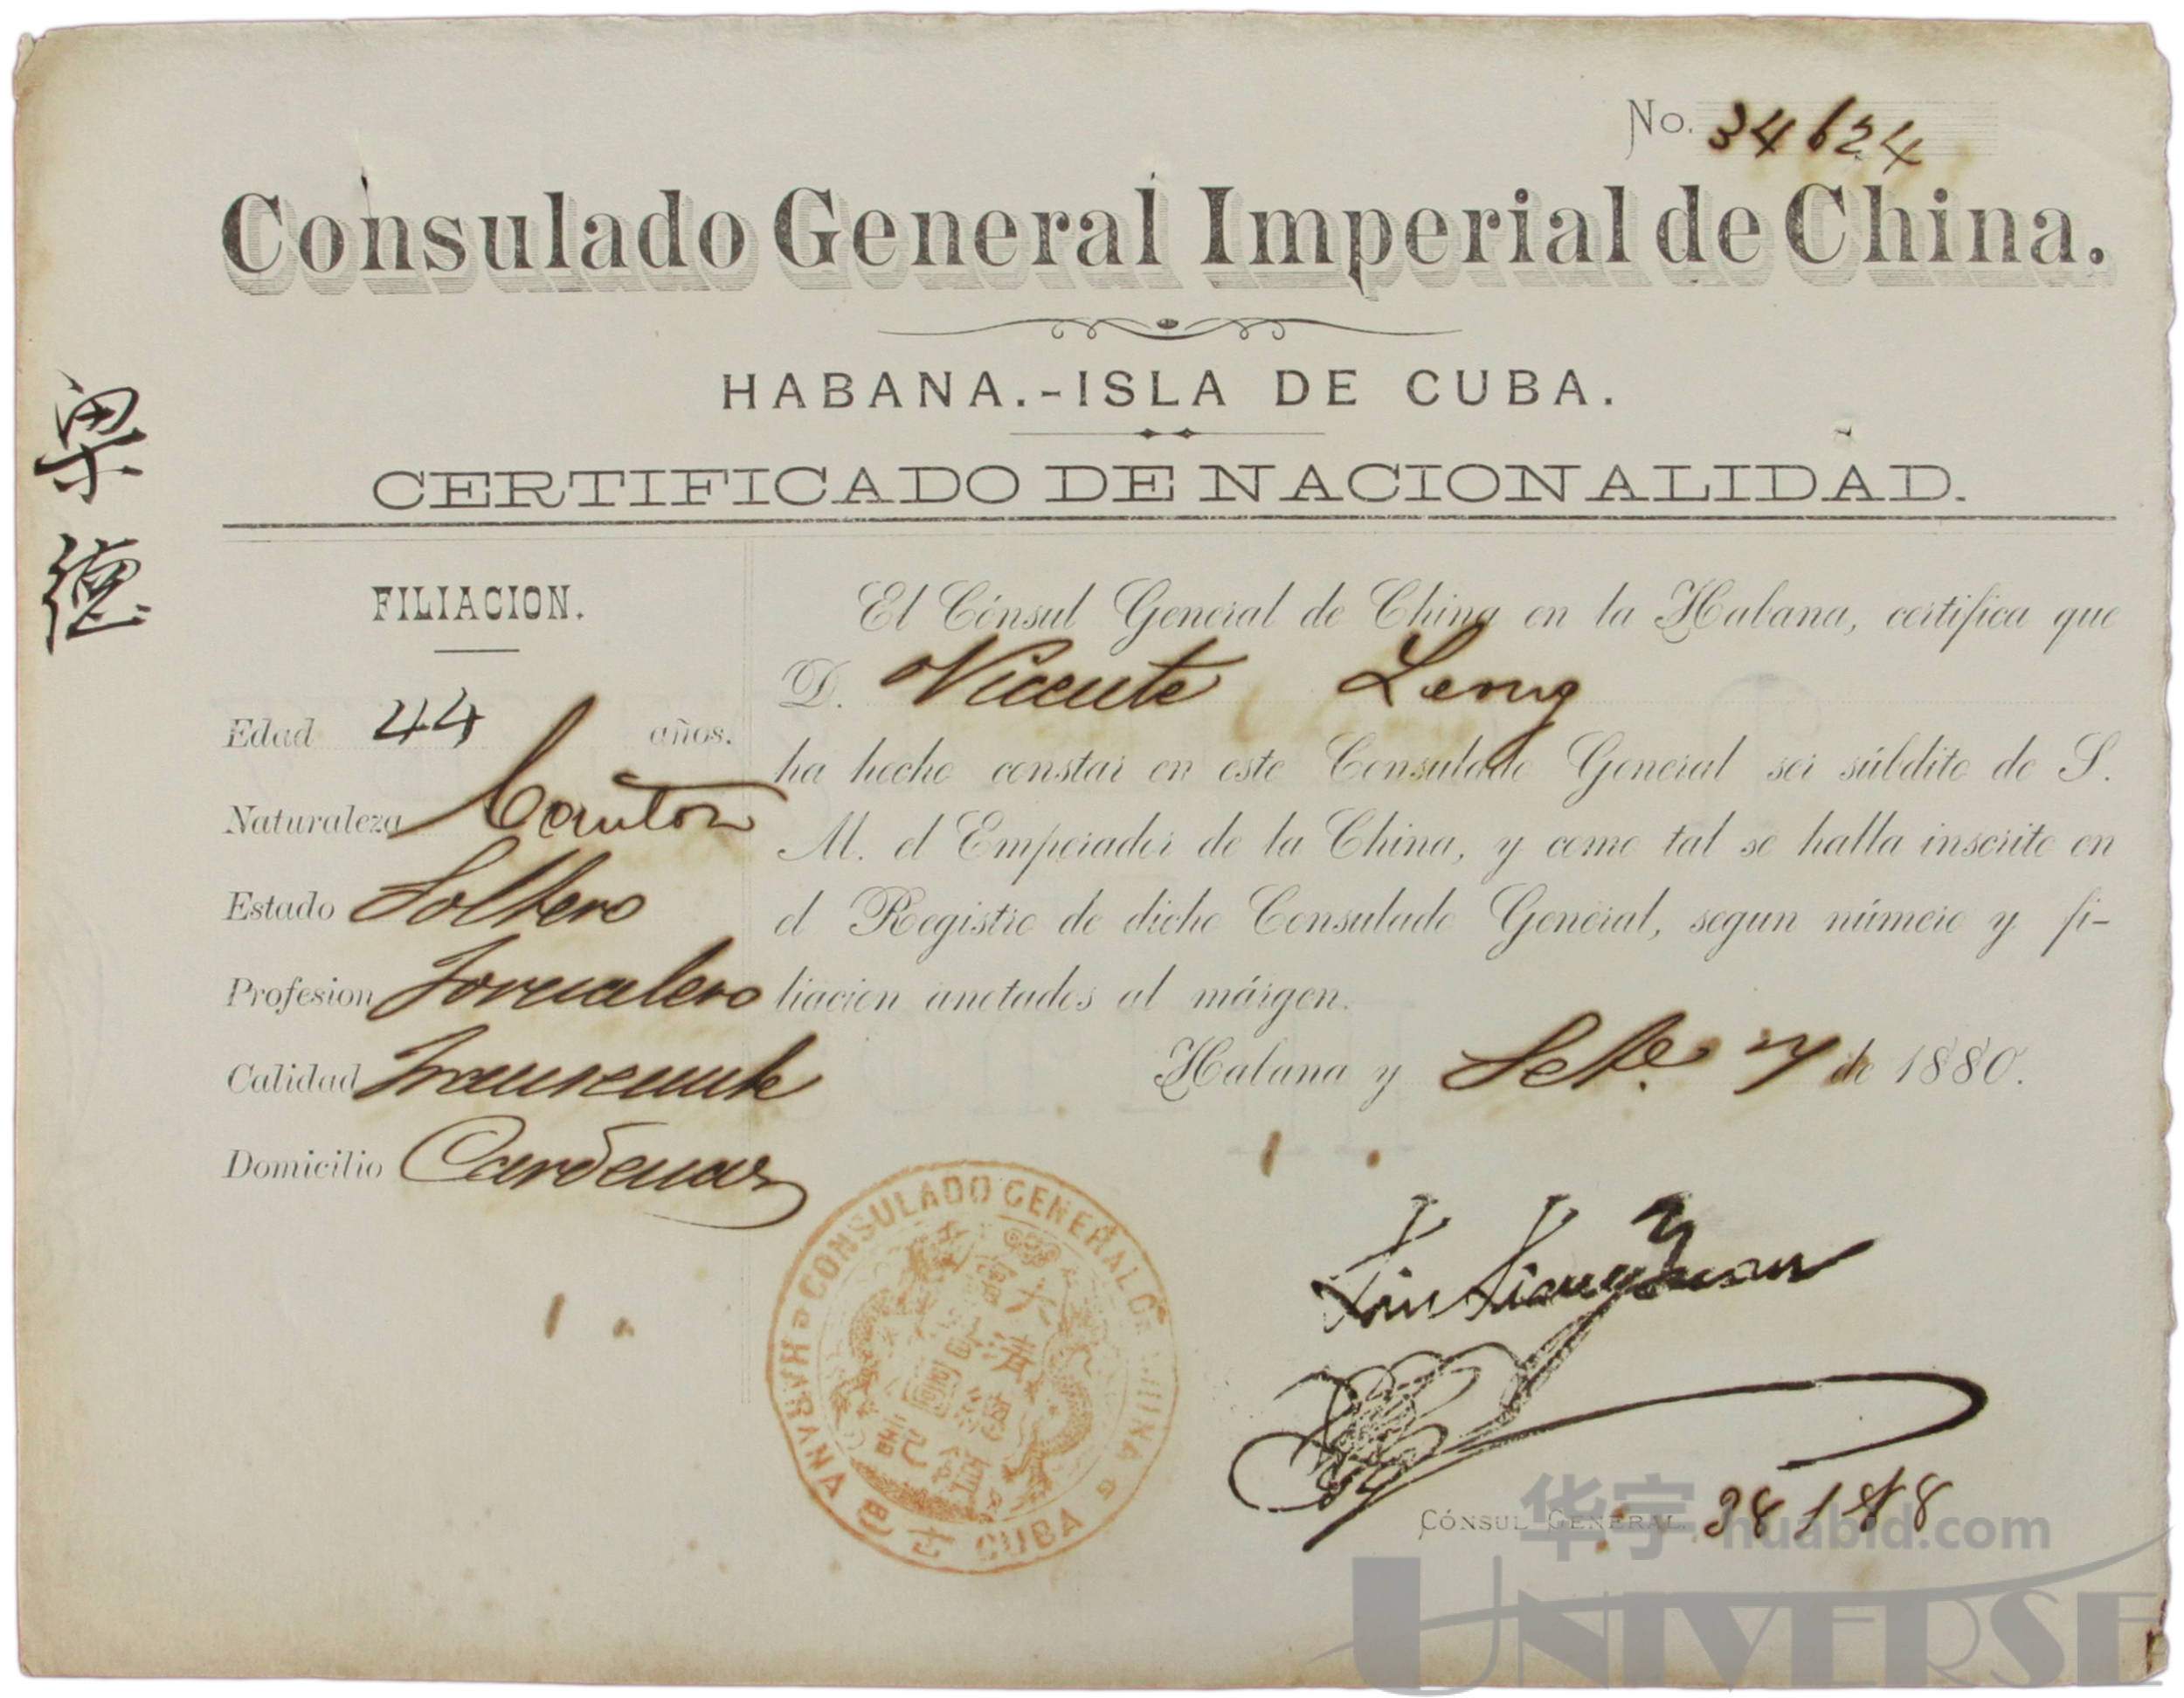 No. 34624
Consulado General Imperial de China.
HABANA.-ISLA DE CUBA.
CERTIFICADO DE NACIONALIDAD.
德
FILIACION.
Edad 44 años.
Naturaleza Canton
Estado Soltero
Profesion Jornalero
Calidad Transeunte
Domicilio Cardenas
El Cónsul General de China en la Habana, certifica que
D. Vicente Leng
ha hecho constar en este Consulado General ser súbdito de S.
M. el Emperador de la China, y como tal se halla inscrito en
el Registro de dicho Consulado General, segun número y fi-
liacion anotados al márgen.
Habana y Sete. 7 de 1880.
CONSULADO GENERAL DE CHINA
HABANA
CUBA
古巴
大清
CÓNSUL GENERAL.
华宇 huabid.com
UNIVERSE